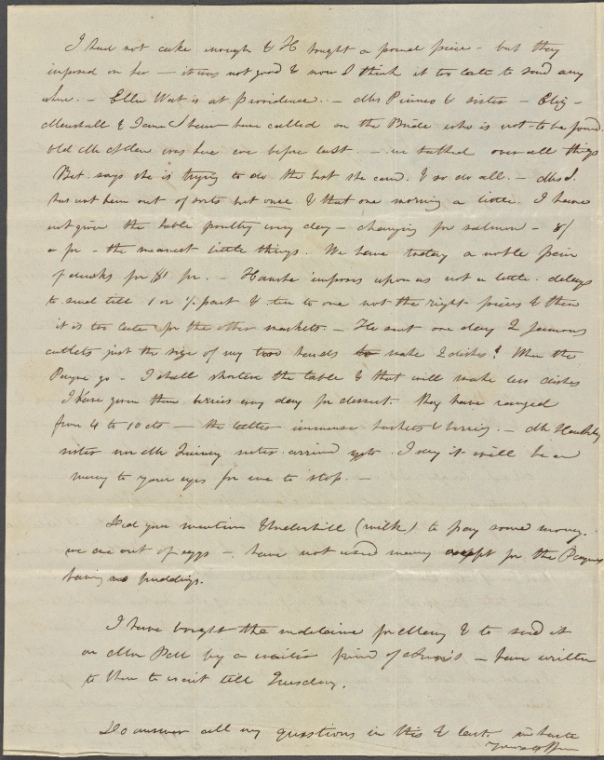 I had not cake enough & H bought a pound piece - but they
imposed on her - it was not good & now I think it too late to send any
else. - Ellen West is at Providence. - Mrs Pinneo & sister - Eliz -
Marshall & Jane I hear have called on the Bride who is not to be found
old Mr Allen was here eve before last. - we talked over all things
Bet. says she is trying to do the best she can. & so do all. - Mrs S.
has not been out of sorts but once & that one morning a little. I have
not given the table poultry every day - changing for salmon - 8/
a pr - the meanest little things. We have today a noble pair
of ducks for $1 pr. - imposes upon us not a little. delays
to send till 1 or ½ past & ten to one not the right pieces & then
it is too late for the other markets - He sent one day 2
cutlets just the size of my two hands to make 2 dishes! When the
Paynes go - I shall shorten the table & that will make less dishes
I have given them berries every day for dessert. they have ranged
from 4 to 10 cts - the latter immense baskets & berries. - Mr
sister nor Mr sister arrived yet. I say it will be a
mercy to your eyes for me to stop. -
Did you mention Underhill (milk) to pay some money.
we are out of eggs - have not used many except for the Paynes
having no puddings.
I have bought the for Mary & to send it
on Mon by a waiter friend of - have written
to them to wait till Tuesday.
Do answer all my questions in this & last. in haste